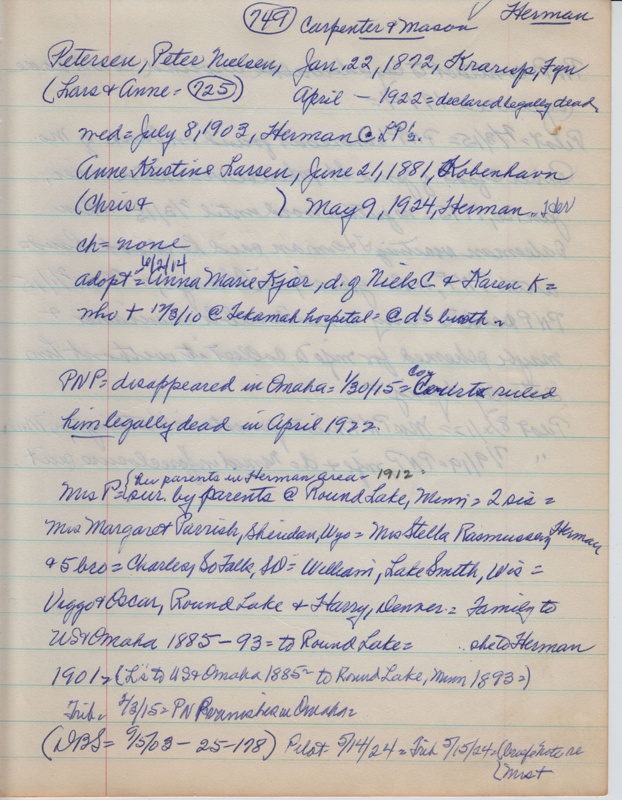 749 Carpenter & Mason ✓ Herman
Petersen, Peter Nielsen, Jan. 22, 1872, Fyn
(Lars & Anne = 725) April – 1922 = declared legally dead
wed = July 8, 1903, Herman @ LP's.
Anne Kristine Larsen, June 21, 1881, Kobenhavn
(Chris & ) May 9, 1924, Herman
ch = none
6/2/14
adopt = Anna Marie Kjør, d. of Niels C. & Karen K =
who + 12/3/10 @ Tekamah hospital = @ d's birth.
PNP = disappeared in Omaha = 1/30/15 = Co Courts ruled
him legally dead in April 1922.
(her parents in Herman area = 1912 =
Mrs P = sur. by parents @ Round Lake, Minn = 2 sis =
Mrs Margaret Parrish, Sheridan, Wyo = Mrs Stella Rasmussen, Herman
& 5 bro = Charles, So Falls, SD = William, Lake Smith, Wis =
Viggo & Oscar, Round Lake & Harry, Denver = Family to
US & Omaha 1885–93 = to Round Lake = .. she to Herman
1901 = (L's to US & Omaha 1885– to Round Lake, Minn 1893 =)
Trib = 2/3/15 = PN in Omaha =
(DBS = 9/5/03 – 25-178) Pilot 5/14/24 = Trib 5/15/24 = (brief note re
(Mrs +